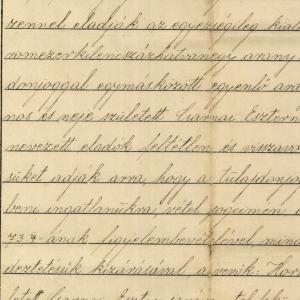 zennel eladják az egyezségileg kial
romezerkilenczszázhatvannégy arany
donjoggal egymásközött egyenlő ará
nos és neje született Csárnai Esztern
nevezett eladók feltétlen és visszavo
süket adják arra, hogy a tulajdonjog
beni ingatlanukra, vétel jogcímen
73 §-ának figyelembevételével mind
deztetésük kizárásával a vevők: Hor